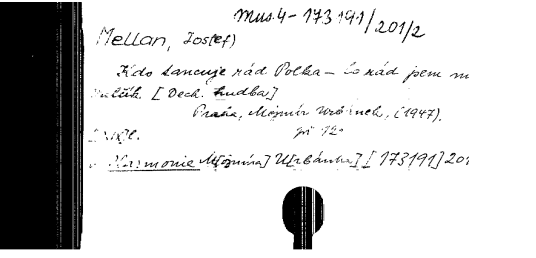 Mus. 4 - 173 191/201/2
Mellan, Jos(ef)
Kdo tancuje rád Polka - Co rád jsem m
[Dech. hudba]
Praha, Mojmír Urbánek, (1947).
12°
Harmonie M[ojmíra] U[rbánka] [173191] 201